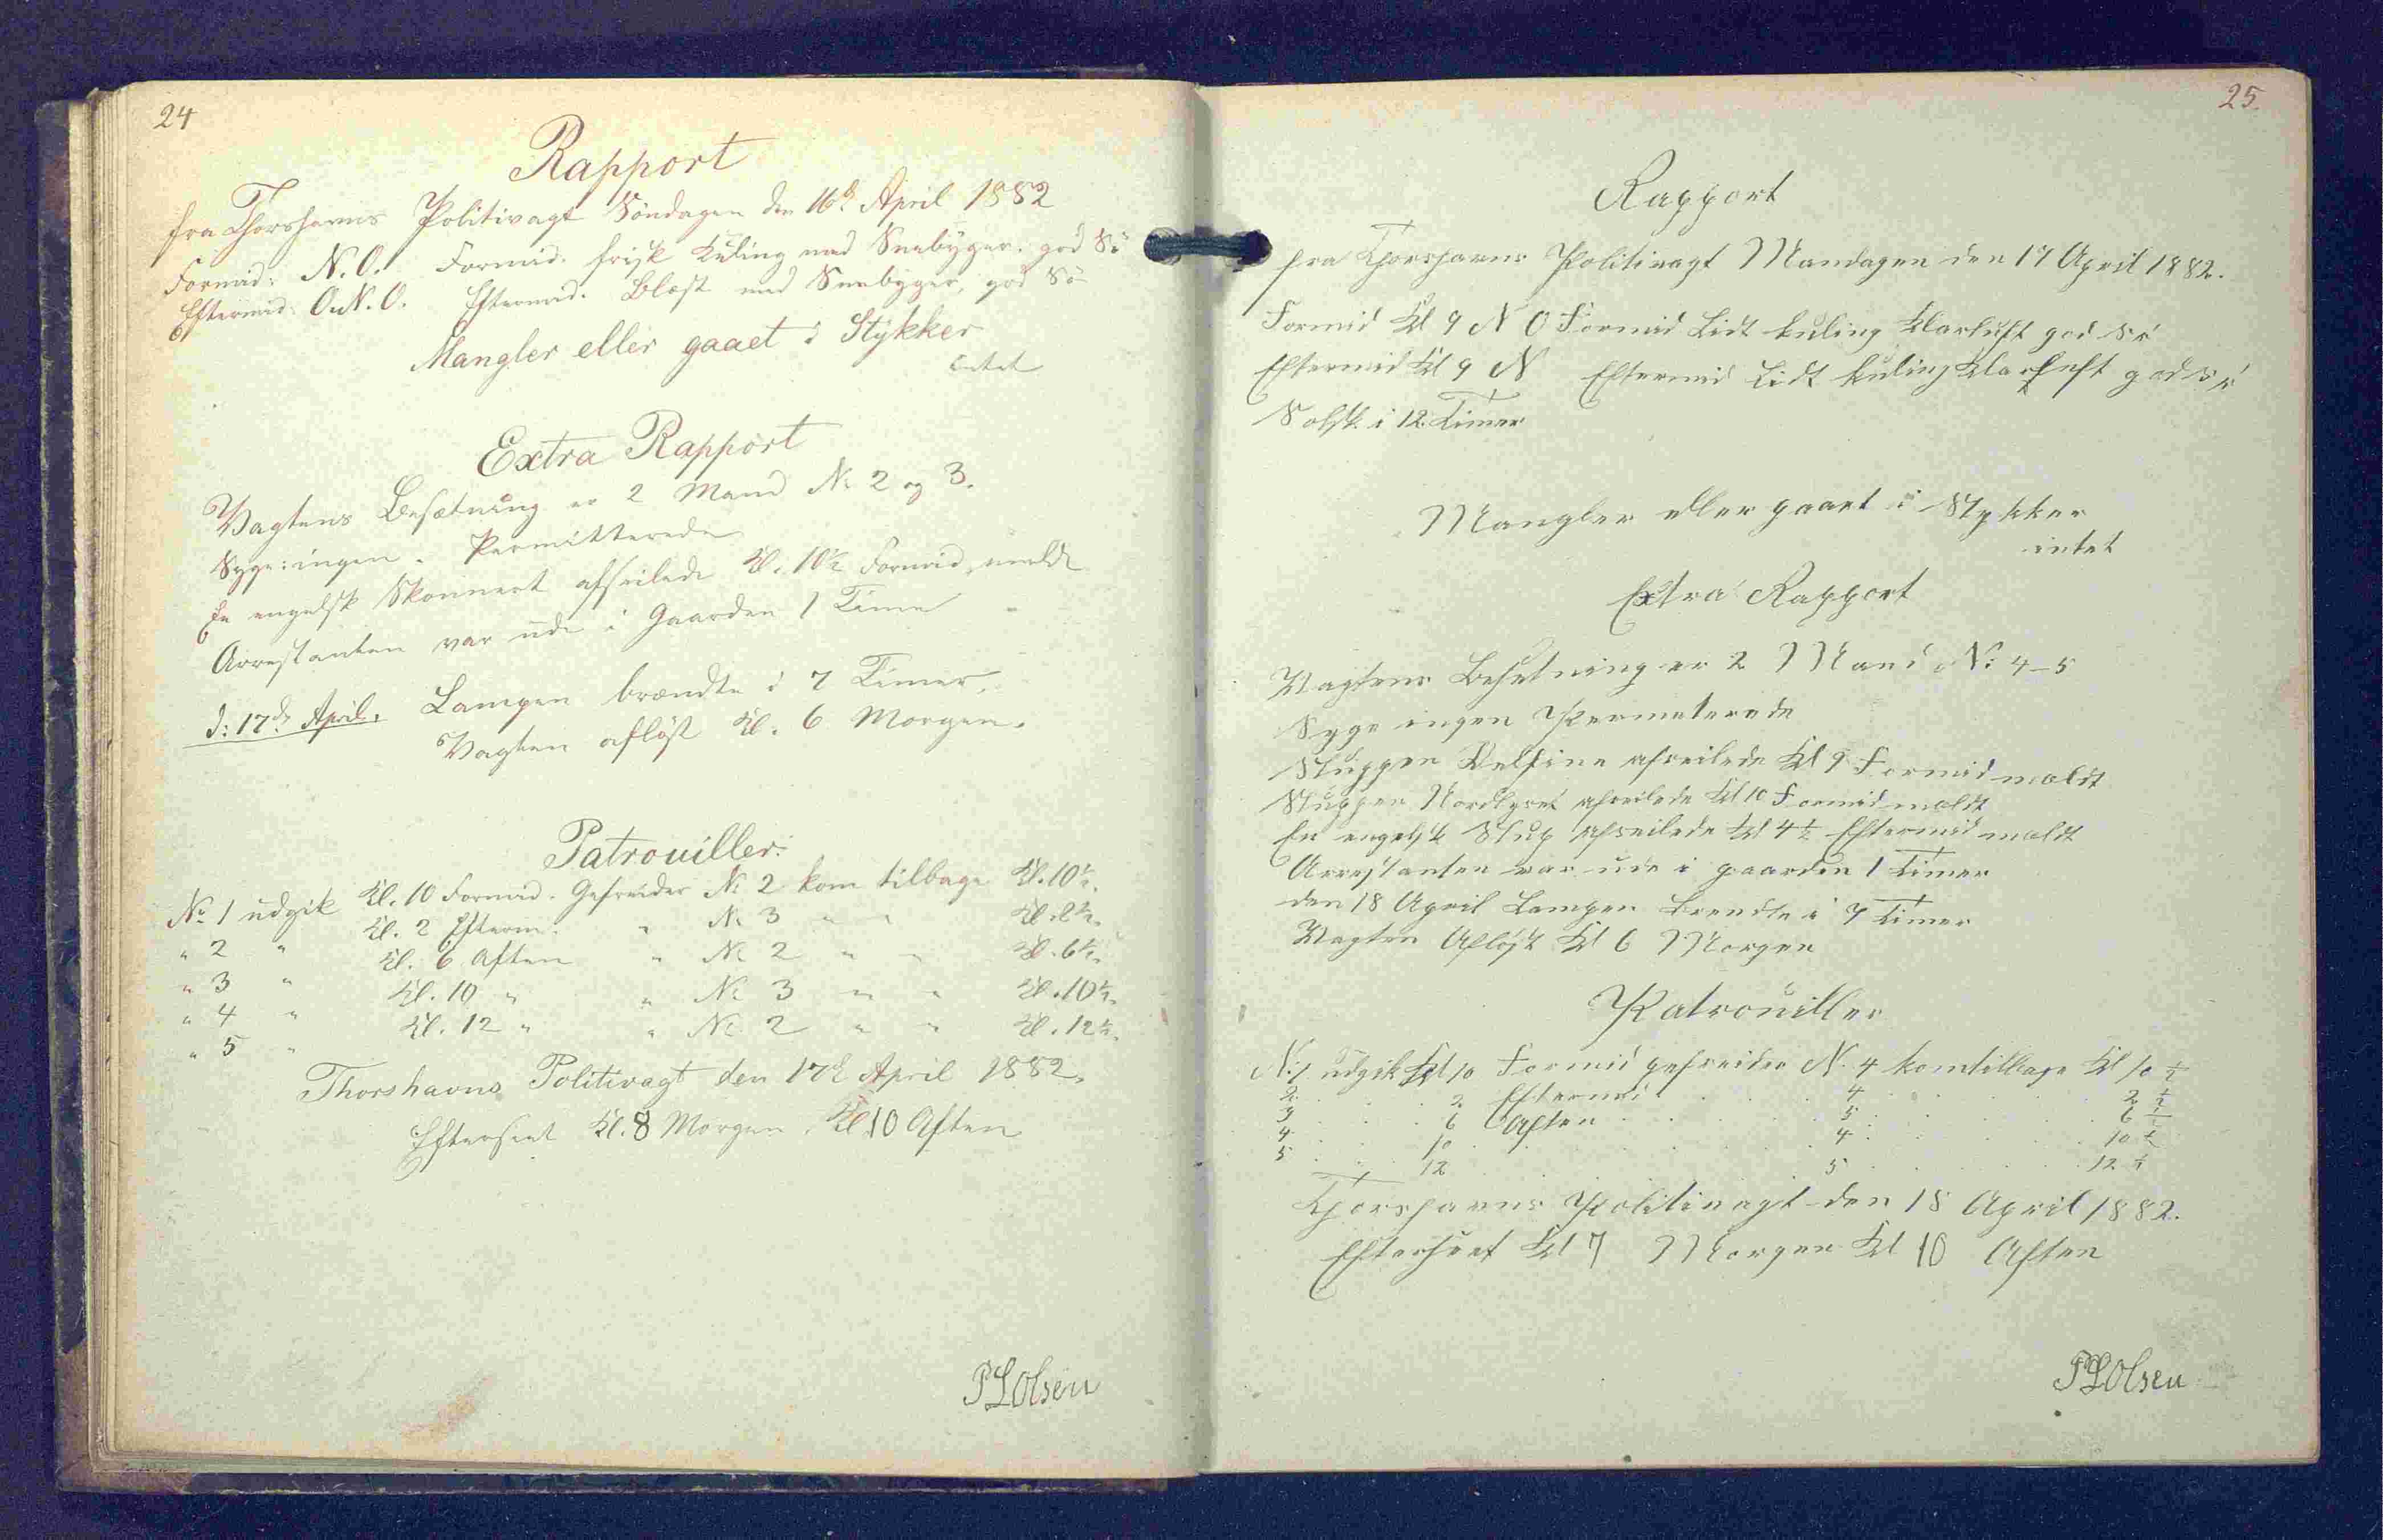 24
Rapport
fra Thorshavns Politivagt Söndagen den 16d April 1882
Formid: N.O. Formid. frisk Kuling med Sneebyger. god Sö
Eftermid: O.N.O. Eftermid. Blæst med Sneebyger, god Sö
Mangler eller gaaet i Stykker
Intet
Extra Rapport
Vagtens Besætning er 2 Mand No 2 og 3.
Syge: ingen. Permitterede
En engelsk Skonnert afseilede Kl. 10½ Formid, meldt
Arrestanten var ude i Gaarden 1 Time
d: 17d April. Lampen brændte i 7 Timer.
Vagten aflöst Kl. 6 Morgen.
Patrouiller:
No 1 udgik Kl. 10 Formid. Gefreider No 2 kom tilbage Kl. 10½.
" 2 " Kl. 2 Efterm. " No 3 " " Kl. 2½.
" 3 " Kl. 6 Aften " No 2 " " Kl. 6½.
" 4 " Kl. 10 " " No 3 " " Kl. 10½.
" 5 " Kl. 12 " " No 2 " " Kl. 12½.
Thorshavns Politivagt den 17d April 1882.
Efterseet Kl. 8 Morgen. Kl 10 Aften
PLOlsen
25.
Rapport
fra Thorshavns Politivagt Mandagen den 17 April 1882.
Formid Kl 9 N O Formid Lidt kuling Klarluft god Sö
Eftermid Kl 9 N Eftermid Lidt kuling Klarluft god Sö
Solsk. i 12. Timer
Mangler eller gaaet i Stykker
intet
Extra Rapport
Vagtens Besetning er 2 Mand No: 4-5
Syge ingen Permeterede
Sluppen Delfine afseilede Kl 9 Formid meldt
Sluppen Nordlyset afseilede Kl 10 Formid meldt
En engelsk Slup afseilede Kl 4½ Eftermid meldt
Arrestanten var ude i gaarden 1 Timer
den 18 April Lampen brendte i 7 Timer
Vagten Aflöst Kl 6 Morgen
Patrouiller
N: 1 udgik Kl 10 Formid gefreider N. 4 kom tilbage Kl 10 ½
2. . . . 2 Eftermid . . . 4 . . . 2 ½
3 . . . 6 Aften . . . 5 . . . 6 ½
4 . . . 10 . . . 4 . . . 10 ½
5 . . . 12 . . . 5 . . . 12 ½
Thorshavns Politivagt den 18 April 1882.
Efterseet Kl 7 Morgen Kl 10 Aften
PLOlsen